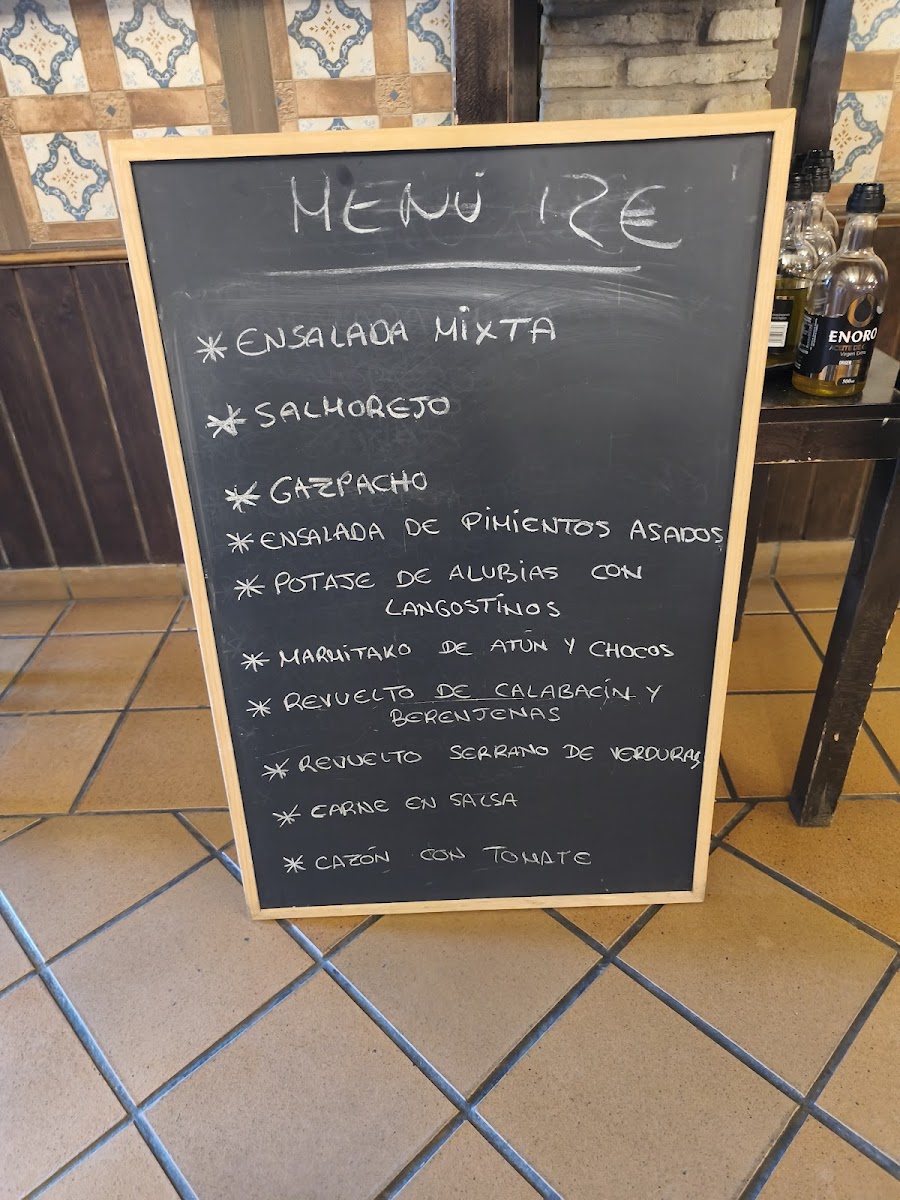 MENÚ 12€
* ENSALADA MIXTA
* SALMOREJO
* GAZPACHO
* ENSALADA DE PIMIENTOS ASADOS
* POTAJE DE ALUBIAS CON
LANGOSTÍNOS
* MARMITAKO DE ATÚN Y CHOCOS
* REVUELTO DE CALABACÍN Y
BERENJENAS
* REVUELTO SERRANO DE VERDURAS
* CARNE EN SALSA
* CAZÓN CON TOMATE
ENORO
ACEITE DE
Virgen Extra